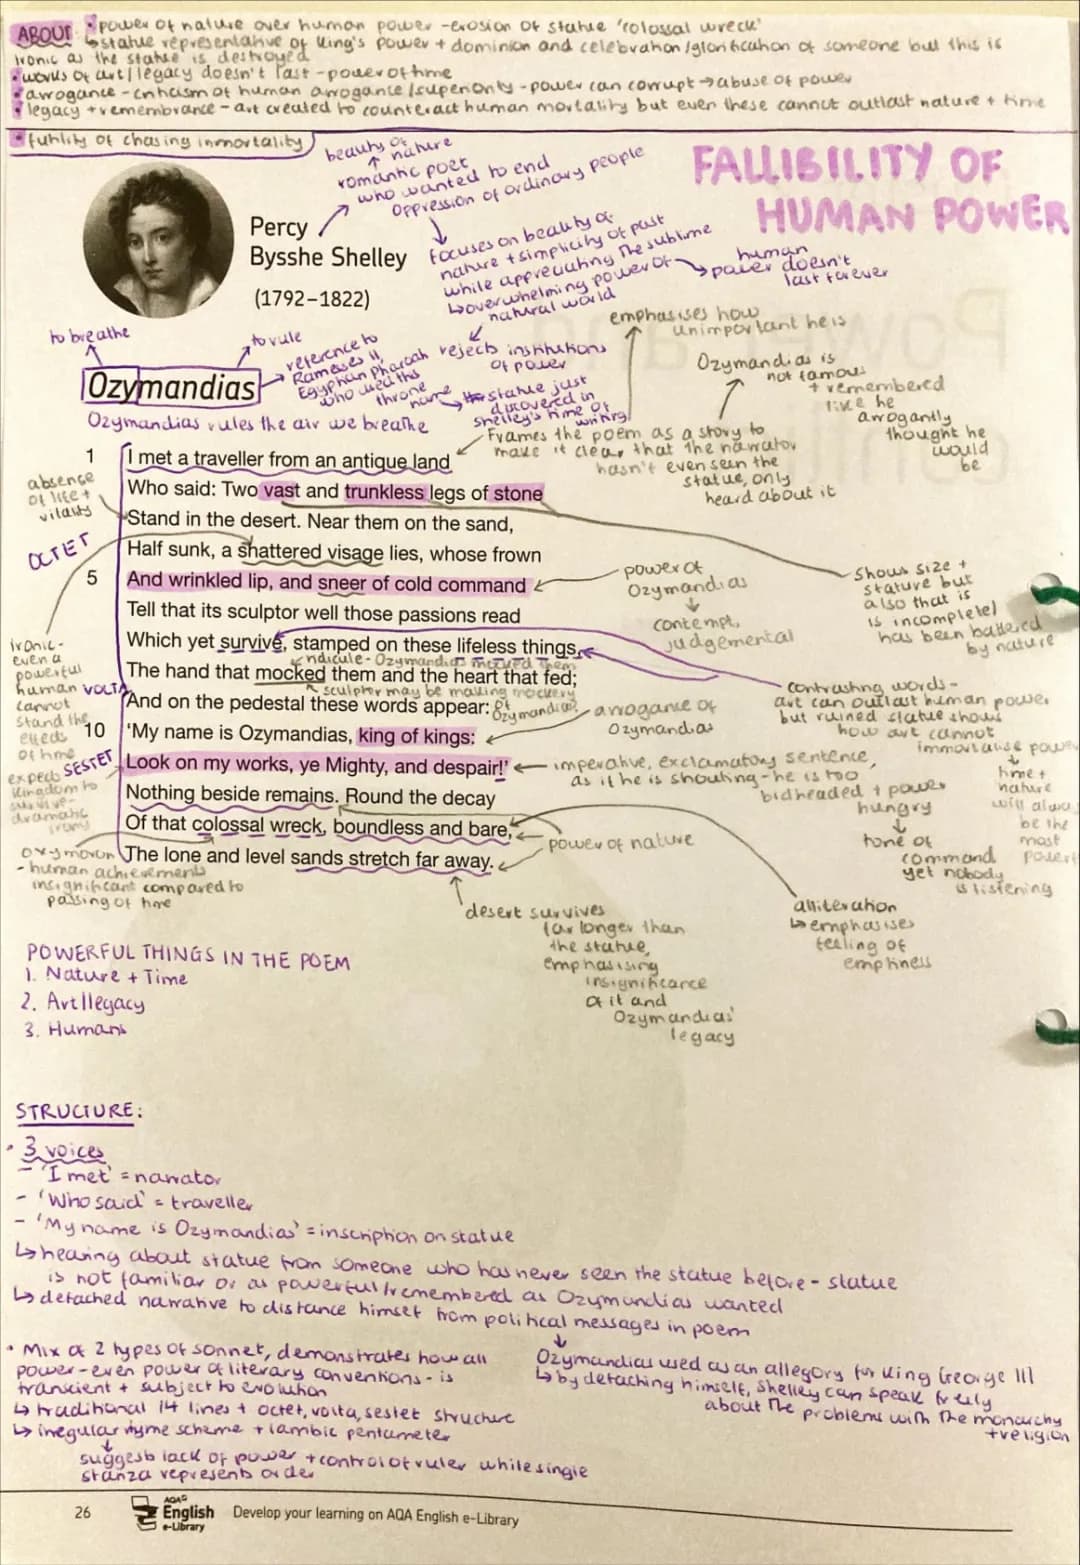 ABOUT •power of nature over human power - erosion of statue 'colossal wreck'
↳statue representative of king's power + dominion and celebration/glorification of someone but this is
ironic as the statue is destroyed
•works of art/legacy doesn't last - power of time
•arrogance - criticism of human arrogance/superiority - power can corrupt → abuse of power
•legacy + remembrance - art created to counteract human mortality but even these cannot outlast nature + time
•futility of chasing immortality
FALLIBILITY OF
HUMAN POWER
beauty of
↑ nature
romantic poet
who wanted to end
oppression of ordinary people
Percy
Bysshe Shelley
(1792–1822)
focuses on beauty of
nature + simplicity of past
while appreciating the sublime
↳overwhelming power of
natural world
human
power doesn't
last forever
rejects institutions
of power
to breathe
to rule
Ozymandias
reference to
Ramesses II,
Egyptian Pharoah
who used this
throne
name
statue just
discovered in
Shelley's time of
writing
Ozymandias rules the air we breathe
emphasises how
unimportant he is
Ozymandias is
not famous
+ remembered
like he
arrogantly
thought he
would
be
Frames the poem as a story to
make it clear that the narrator
hasn't even seen the
statue, only
heard about it
1 I met a traveller from an antique land
Who said: Two vast and trunkless legs of stone
Stand in the desert. Near them on the sand,
Half sunk, a shattered visage lies, whose frown
5 And wrinkled lip, and sneer of cold command
Tell that its sculptor well those passions read
Which yet survive, stamped on these lifeless things,
ridicule - Ozymandias mocked them
The hand that mocked them and the heart that fed;
sculptor may be making mockery
of Ozymandias
And on the pedestal these words appear:
10 'My name is Ozymandias, king of kings:
Look on my works, ye Mighty, and despair!'
Nothing beside remains. Round the decay
Of that colossal wreck, boundless and bare,
The lone and level sands stretch far away.
absence
of life +
vitality
OCTET
ironic -
even a
powerful
human
cannot
stand the
effects
of time
VOLTA
SESTET
expects
kingdom to
survive -
dramatic
irony
oxymoron
- human achievements
insignificant compared to
passing of time
power of
Ozymandias
↓
contempt,
judgemental
shows size +
stature but
also that is
is incomplete/
has been battered
by nature
contrasting words -
art can outlast human power
but ruined statue shows
how art cannot
immortalise power
↓
time +
nature
will
be the
most
arrogance of
Ozymandias
imperative, exclamatory sentence,
as if he is shouting - he is too
bigheaded + power
hungry
↓
tone of
command
yet nobody
is listening
power of nature
desert survives
far longer than
the statue,
emphasising
insignificance
of it and
Ozymandias'
legacy
alliteration
↳emphasises
feeling of
emptiness
POWERFUL THINGS IN THE POEM
1. Nature + Time
2. Art/legacy
3. Humans
STRUCTURE:
• 3 voices
- 'I met' = narrator
- 'Who said' = traveller
- 'My name is Ozymandias' = inscription on statue
↳hearing about statue from someone who has never seen the statue before - statue
is not familiar or as powerful/remembered as Ozymandias wanted
↳detached narrative to distance himself from political messages in poem
↓
Ozymandias used as an allegory for King George III
↳by detaching himself, Shelley can speak freely
about the problems with the monarchy
+ religion
• Mix of 2 types of sonnet, demonstrates how all
power - even power of literary conventions - is
transient + subject to evolution
↳traditional 14 lines + octet, volta, sestet structure
↳irregular rhyme scheme + iambic pentameter
↓
suggests lack of power + control of ruler while single
stanza represents order
26 AQA English e-Library Develop your learning on AQA English e-Library